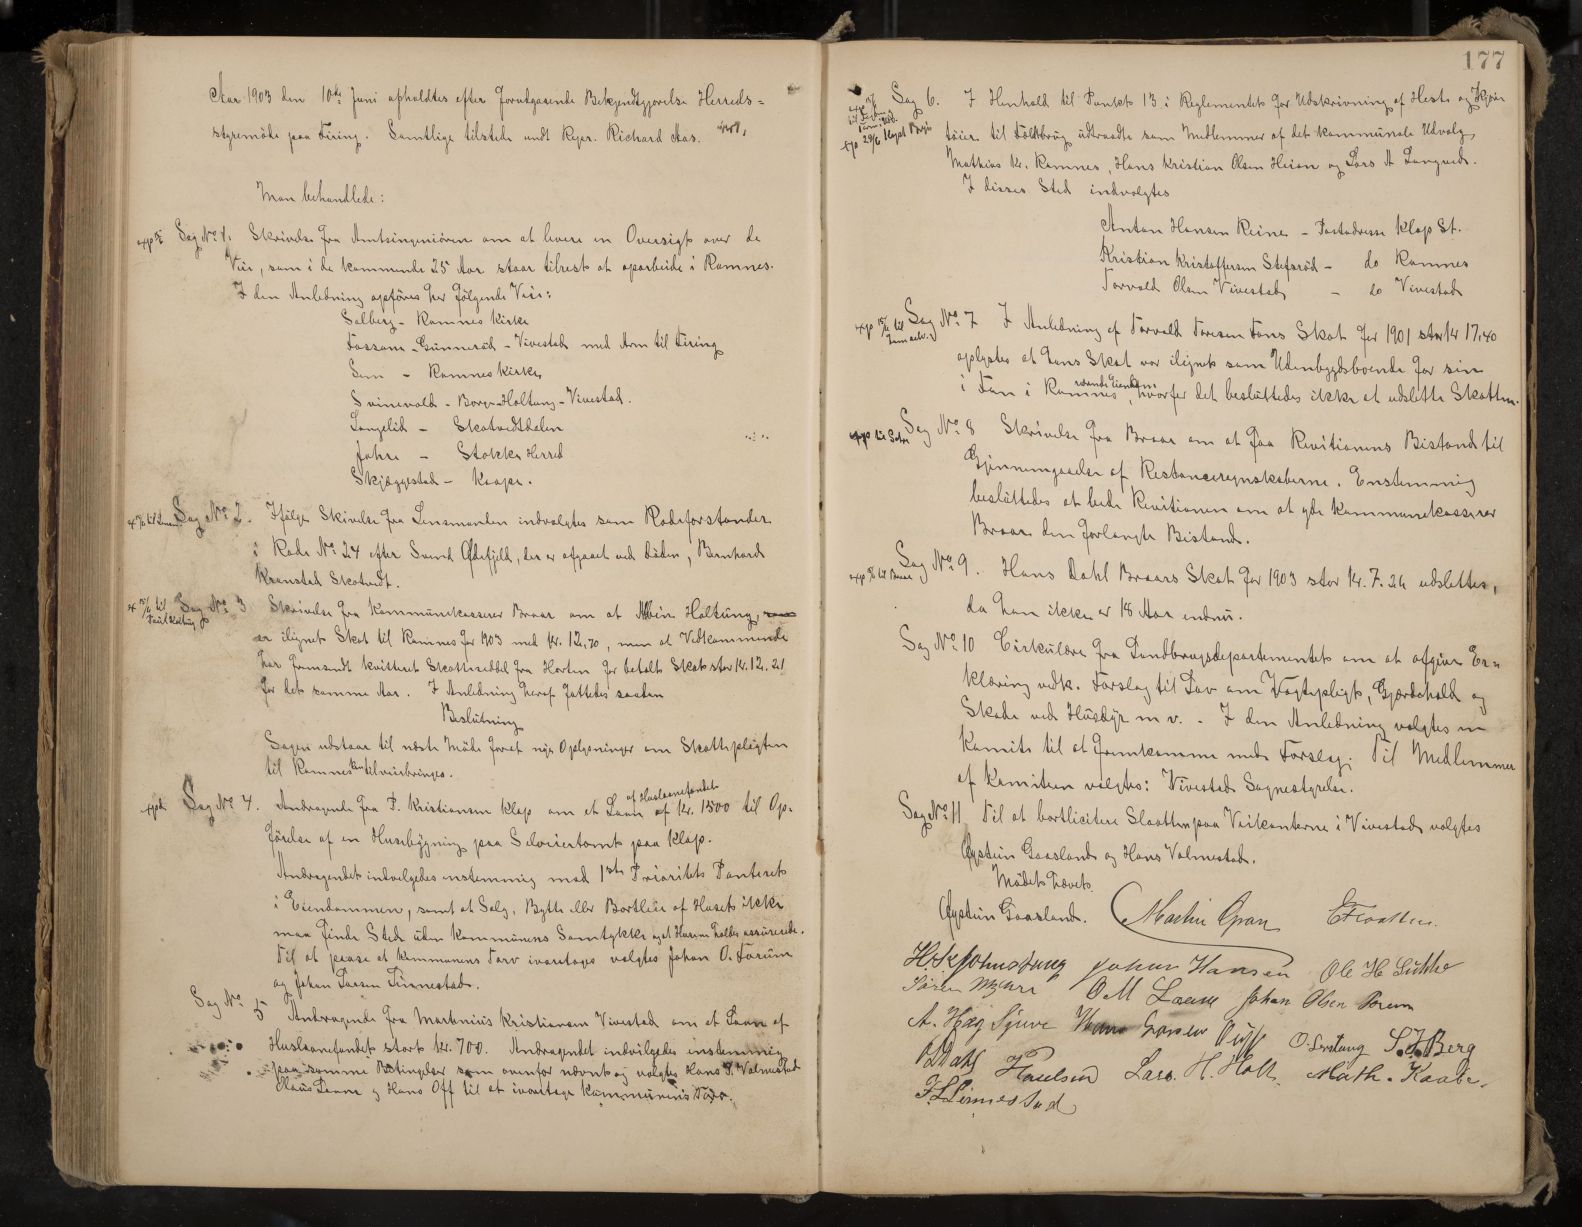 Aar 1903 den 10de Juni afholdtes efter forudgaaende Bekjendtgjørelse Herreds=
styremöde paa Firing. Samtlige tilstede undt Repr. Richard Aas.
Man behandlede:
Sag No 1. Skrivelse fra Amtsingeniören om at levere en Oversigt over de
Veie, som i de kommende 25 Aar staar tilrest at oparbeide i Ramnes.
I den Anledning opföres her fölgende Veie:
Solberg - Ramnes Kirke
Fossane - Gunneröd - Vivestad med Arm til Firing
Sem - Ramnes Kirke
Svinevold - Borge - Holtung - Vivestad.
Langelid - Skotvedtdalen
Johre - Stokke Herred
Skjæggestad - Kaape.
Sag No 2. Ifölge Skrivelse fra Lensmanden indvalgtes som Rodeforstander
i Rode No 24 efter Svend Oldefjeld, der er afgaaet ved döden, Bernhard
Kranstad Skotvedt.
exp 15/6 til Paul Holtung
Sag No 3 Skrivelse fra Kommunekasserer Braar om at Albin Holtung,
er ilignet Skat til Ramnes for 1903 med Kr. 12,70, men at Vedkommende
har fremsendt kvitteret Skatteseddel fra Horten for betalt Skat stor Kr. 12.21
for det samme Aar. I Anledning heraf fattedes saadan
Beslutning
Sagen udstaar til næste Möde forat nye Oplysninger om Skattepligten
til Ramnes kan tilveiebringes.
Sag No 4. Andragende fra P. Kristiansen Klop om et Laan af Huslaanefondet af Kr. 1500 til Op-
förelse af en Husebygning paa Selveiertomt paa Klop.
Andragendet indvilgedes enstemmig mod 1ste Prioritets Panteret
i Eiendommen, samt at Salg, Bytte eller Bortleie af Huset ikke
maa finde Sted uden Kommunens Samtykke og at Husene holdes assurerede.
Til at passe at Kommunens Tarv ivaretages valgtes Johan O. Forum
og Johan Larsen Linnestad.
Sag No 5 Andragende fra Martinius Kristiansen Vivestad om et Laan af
Huslaanefondet stort Kr. 700. Andragendet indvilgedes enstemmig
paa samme Betingelser som ovenfor nævnt og valgtes Hans P. Valmestad
Olaus Lerme og Hans Off til at ivaretage Kommunens Tarv.
177
Sag 6. I Henhold til Punkt 13 i Reglementet for Udskrivning af Heste og Kjöre
töier til Feltbrug udtraadte som Medlemmer af det kommunale Udvalg
Mathias Kr. Ramnes, Hans Kristian Olsen Heian og Lars A Langved.
I disses Sted indvalgtes
Anton Hansen Reine - Postadresse Klop St.
Kristian Kristoffersen Stefsröd - do Ramnes
Torvald Olsen Vivestad - do Vivestad
Sag No 7 I Anledning af Torvald Foresen Fons Skat for 1901 stor Kr 17,40
oplystes at hans Skat var ilignet som Udenbygdsboende for sin
i Fon i Ramnes værende Eiendom, hvorfor det besluttedes ikke at udslette Skatten.
Sag No 8 Skrivelse fra Braar om at faa Revitionens Bistand til
Gjennemgaaelse af Restanceregnskaberne. Enstemmig
besluttedes at bede Revitionen om at yde Kommunekasserer
Braar den forlangte Bistand.
Sag No 9. Hans Dahl Braars Skat for 1903 stor Kr. 7.26 udslettes,
da han ikke er 18 Aar endnu.
Sag No 10 Cirkulære fra Landbrugsdepartementet om at afgive Er=
klæring vedk. Forslag til Lov om Vogtepligt, Gjærdehold og
Skade ved Husdyr m v. - I den Anledning valgtes en
Komite til at fremkomme med Forslag. Til Medlemmer
af Komiteen valgtes: Vivestad Sognestyrelse.
Sag No 11 Til at bortlicitere Slaatten paa Veikanterne i Vivestad valgtes
Øystein Gaasland og Hans Valmestad.
Mödet hævet.
Øystein Gaasland. Martin Gran
Johan Hansen
Sören Myhre O. M. Laane Johan Olsen
S. J. Berg
Paulsen Lars. H. Holt. Math. Kaabe.
F. Linnestad